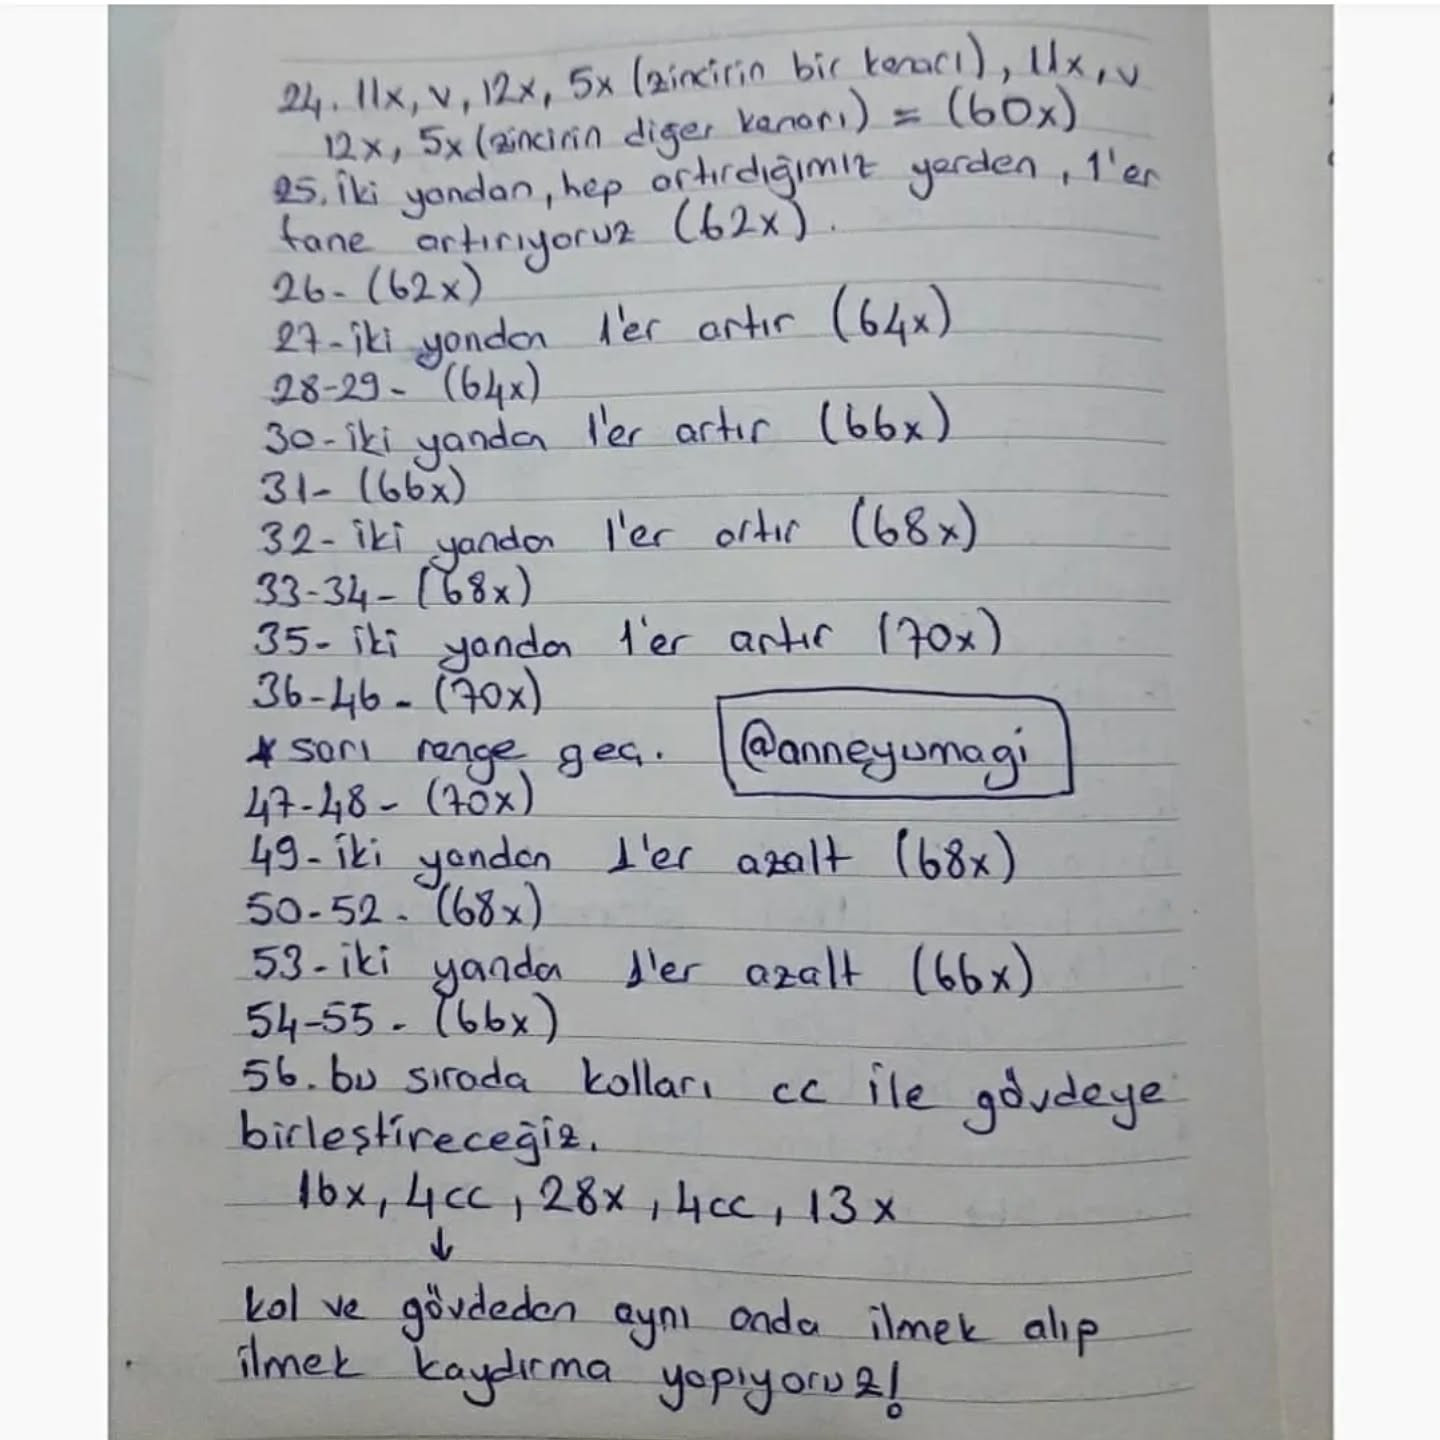 24. 11x, v, 12x, 5x (zincirin bir kenarı), 11x, v
12x, 5x (zincirin diğer kenarı) = (60x)
25. İki yandan, hep artırdığımız yerden, 1'er
tane artırıyoruz (62x).
26- (62x)
27- iki yandan 1'er artır (64x)
28-29- (64x)
30- iki yandan 1'er artır (66x)
31- (66x)
32- iki yandan 1'er artır (68x)
33-34- (68x)
35- iki yandan 1'er artır (70x)
36-46- (70x)
* sarı renge geç. @anneyumagi
47-48- (70x)
49- iki yandan 1'er azalt (68x)
50-52. (68x)
53- iki yandan 1'er azalt (66x)
54-55. (66x)
56. bu sırada kolları cc ile gövdeye
birleştireceğiz.
16x, 4cc, 28x, 4cc, 13x
↓
kol ve gövdeden aynı anda ilmek alıp
ilmek kaydırma yapıyoruz!